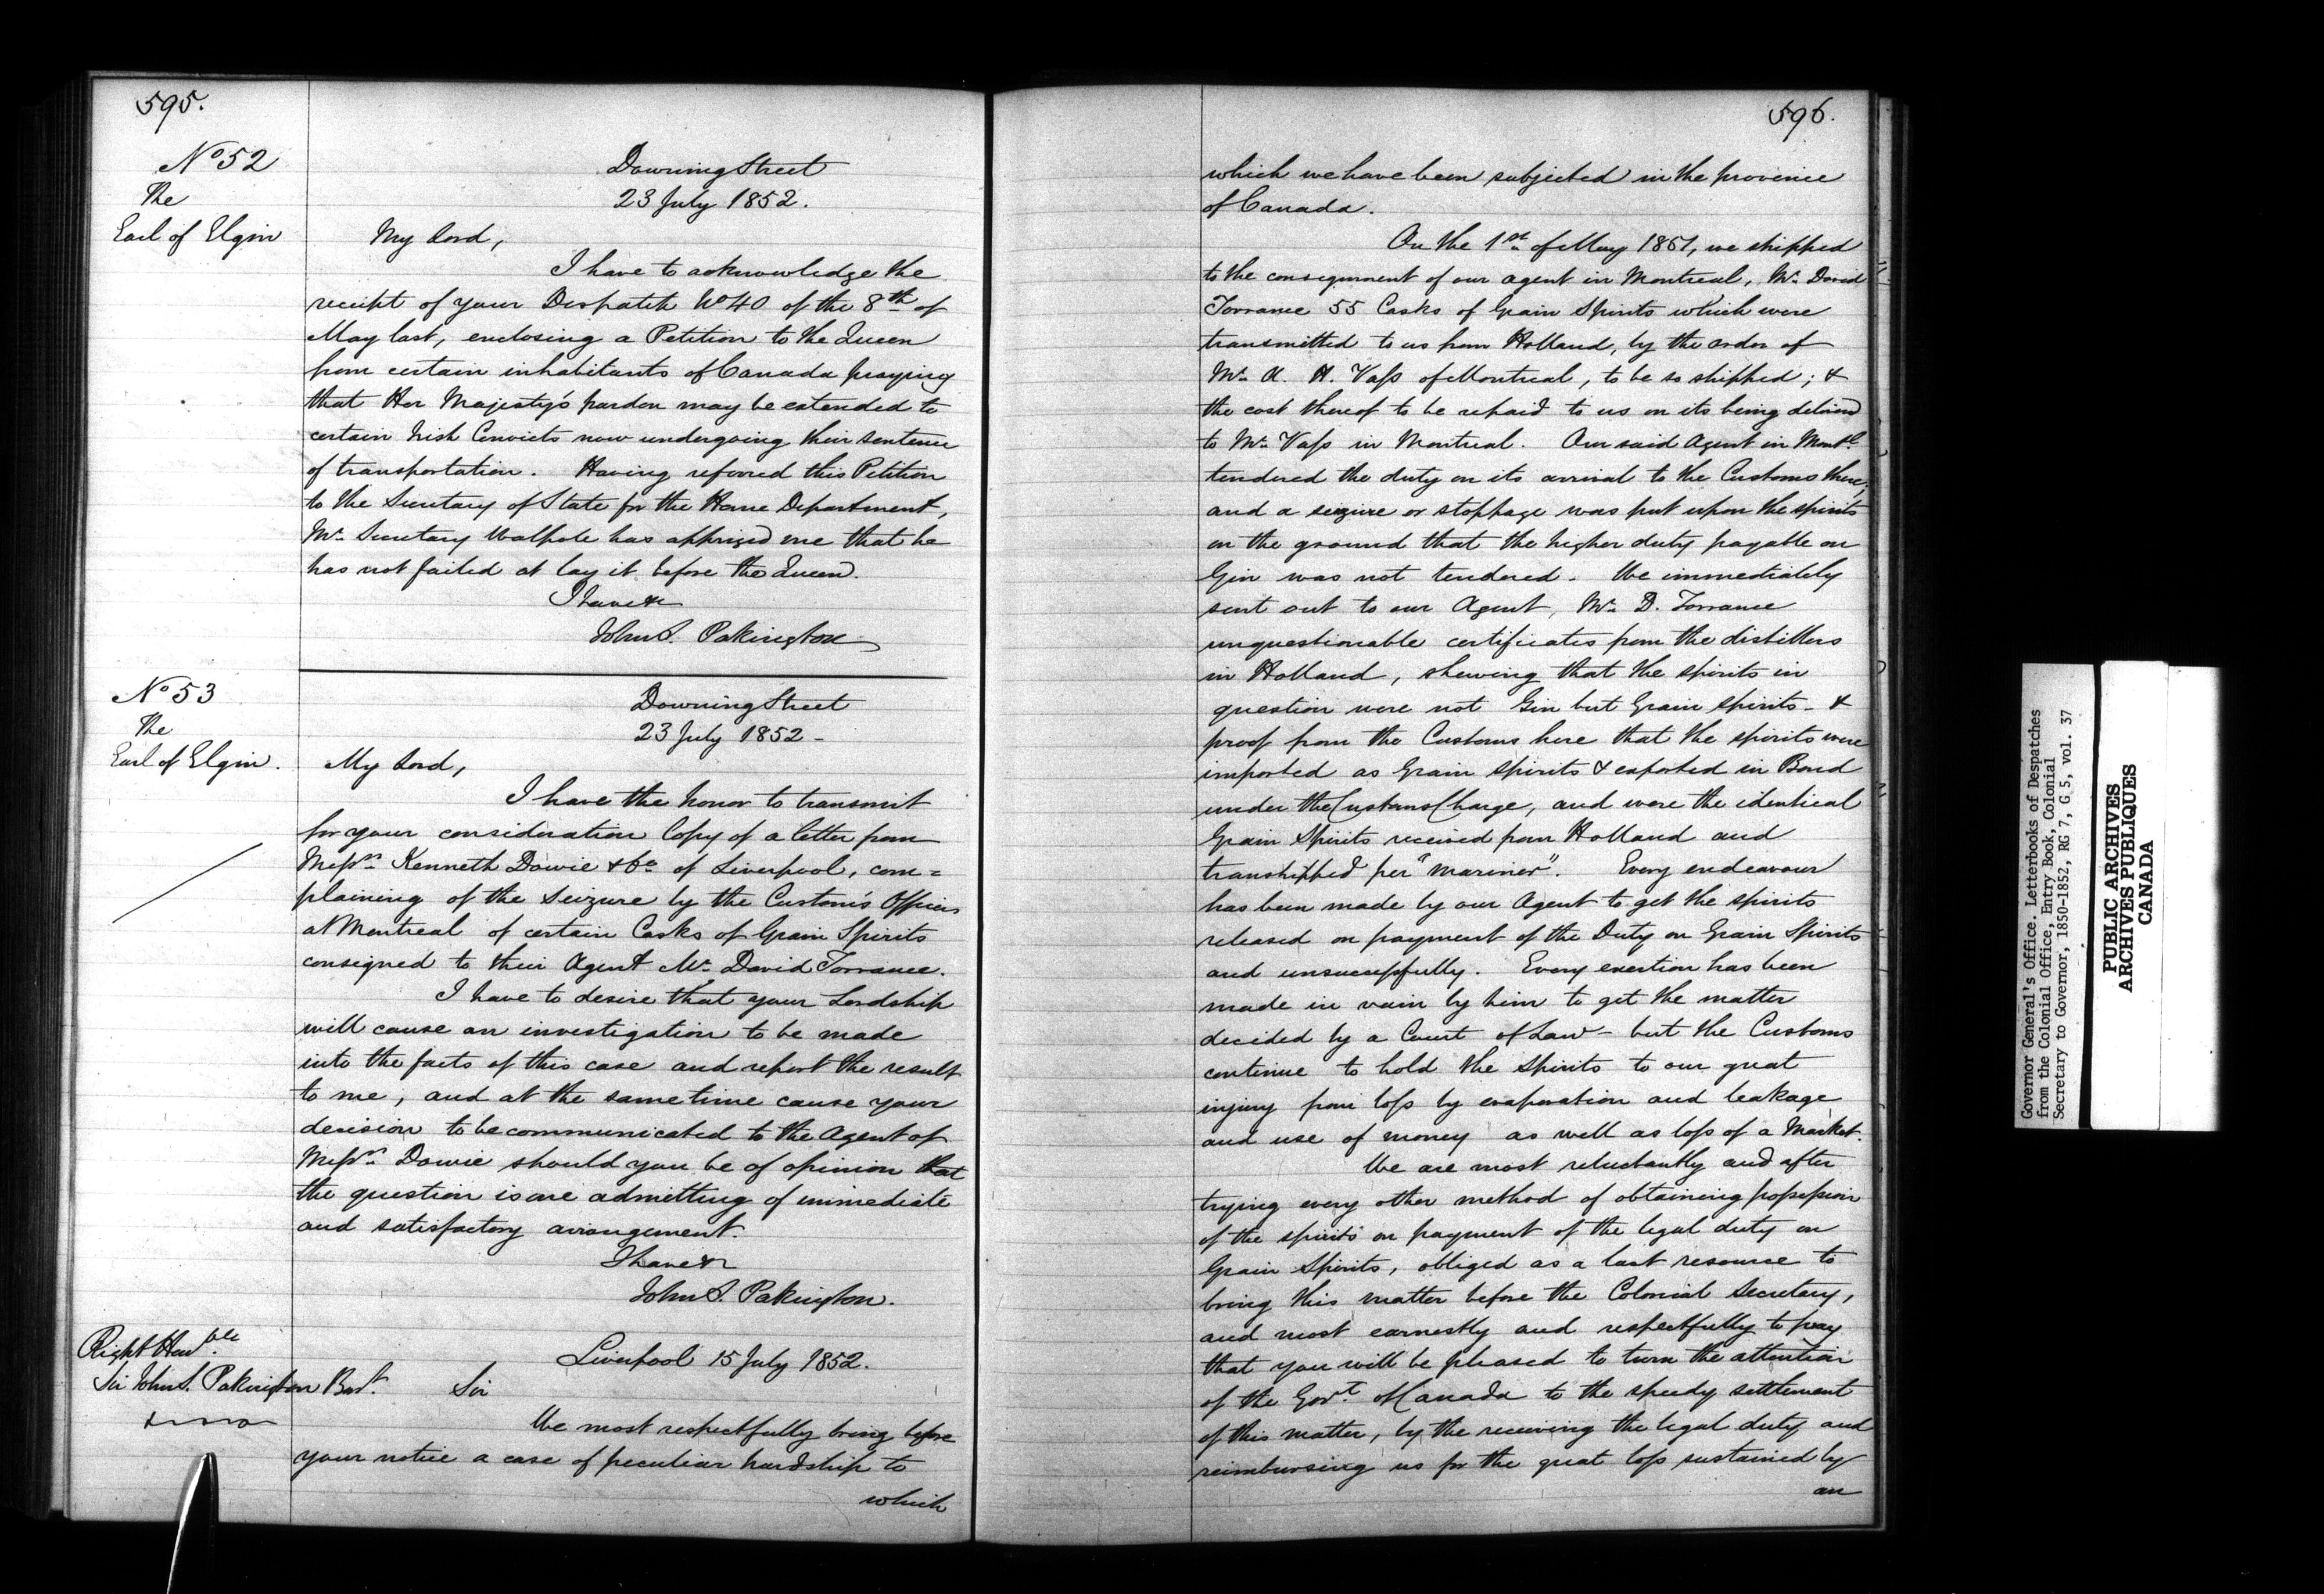 595.
No 52
The
Earl of Elgin
Downing Street
23 July 1852.
My Lord,
I have to acknowledge the
receipt of your Despatch No 40 of the 8th of
May last, enclosing a Petition to the Queen
from certain inhabitants of Canada praying
that Her Majesty's pardon may be extended to
certain Irish Convicts now undergoing their sentence
of transportation. Having referred this Petition
to the Secretary of State for the Home Department,
Mr. Secretary Walpole has apprized me that he
has not failed at lay it before the Queen.
I have &c
John S. Pakington
No 53
The
Earl of Elgin.
Downing Street
23 July 1852 -
My Lord,
I have the honor to transmit
for your consideration Copy of a letter from
Messrs. Kenneth Dowie & Co. of Liverpool, com=
plaining of the seizure by the Custom's Officers
at Montreal of certain Casks of Grain Spirits
consigned to their Agent Mr. David Torrance.
I have to desire that your Lordship
will cause an investigation to be made
into the facts of this case and report the result
to me, and at the same time cause your
decision to be communicated to the Agent of
Messrs. Dowie should you be of opinion that
the question is one admitting of immediate
and satisfactory arrangement.
I have &c
John S. Pakington.
Right Honble.
Sir John S. Pakington Bart.
Liverpool 15 July 1852.
Sir
We most respectfully bring before
your notice a case of peculiar hardship to
which
596.
which we have been subjected in the province
of Canada.
On the 1st of May 1851, we shipped
to the consignment of our agent in Montreal, Mr. David
Torrance 55 Casks of Grain Spirits which were
transmitted to us from Holland, by the order of
Mr. A. H. Vass of Montreal, to be so shipped; &
the cost thereof to be repaid to us on its being delivered
to Mr. Vass in Montreal. Our said Agent in Montl.
tendered the duty on its arrival to the Customs there,
and a seizure or stoppage was put upon the spirits
on the ground that the higher duty payable on
Gin was not tendered. We immediately
sent out to our Agent, Mr. D. Torrance
unquestionable certificates from the distillers
in Holland, shewing that the spirits in
question were not Gin but Grain spirits - &
proof from the Customs here that the spirits were
imported as Grain Spirits & exported in Bond
under the Customs Charge, and were the identical
Grain Spirits received from Holland and
transhipped per "Mariner". Every endeavour
has been made by our Agent to get the spirits
released on payment of the Duty on Grain Spirits
and unsuccessfully. Every exertion has been
made in vain by him to get the matter
decided by a Court of Law - but the Customs
continue to hold the spirits to our great
injury from loss by evaporation and leakage
and use of money as well as loss of a Market.
We are most reluctantly and after
trying every other method of obtaining possession
of the spirits on payment of the legal duty on
Grain Spirits, obliged as a last resource to
bring this matter before the Colonial Secretary,
and most earnestly and respectfully to pray
that you will be pleased to turn the attention
of the Govt. of Canada to the speedy settlement
of this matter, by the receiving the legal duty and
reimbursing us for the great loss sustained by
an
Governor General's Office. Letterbooks of Despatches
from the Colonial Office, Entry Book, Colonial
Secretary to Governor, 1850-1852, RG 7, G 5, vol. 37
PUBLIC ARCHIVES
ARCHIVES PUBLIQUES
CANADA